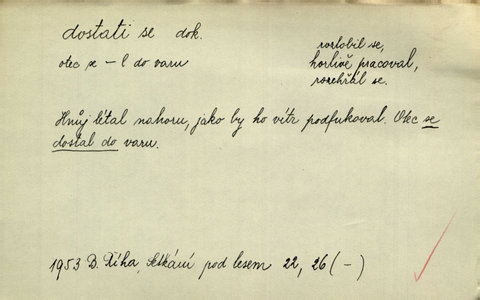 dostati se dok.
rozlobil se,
otec se – l do varu
horlivě pracoval,
rozehřál se.
Hnůj létal nahoru, jako by ho vítr podfukoval. Otec se
dostal do varu.
1953 B. Říha, Setkání pod lesem 22, 26 (–)